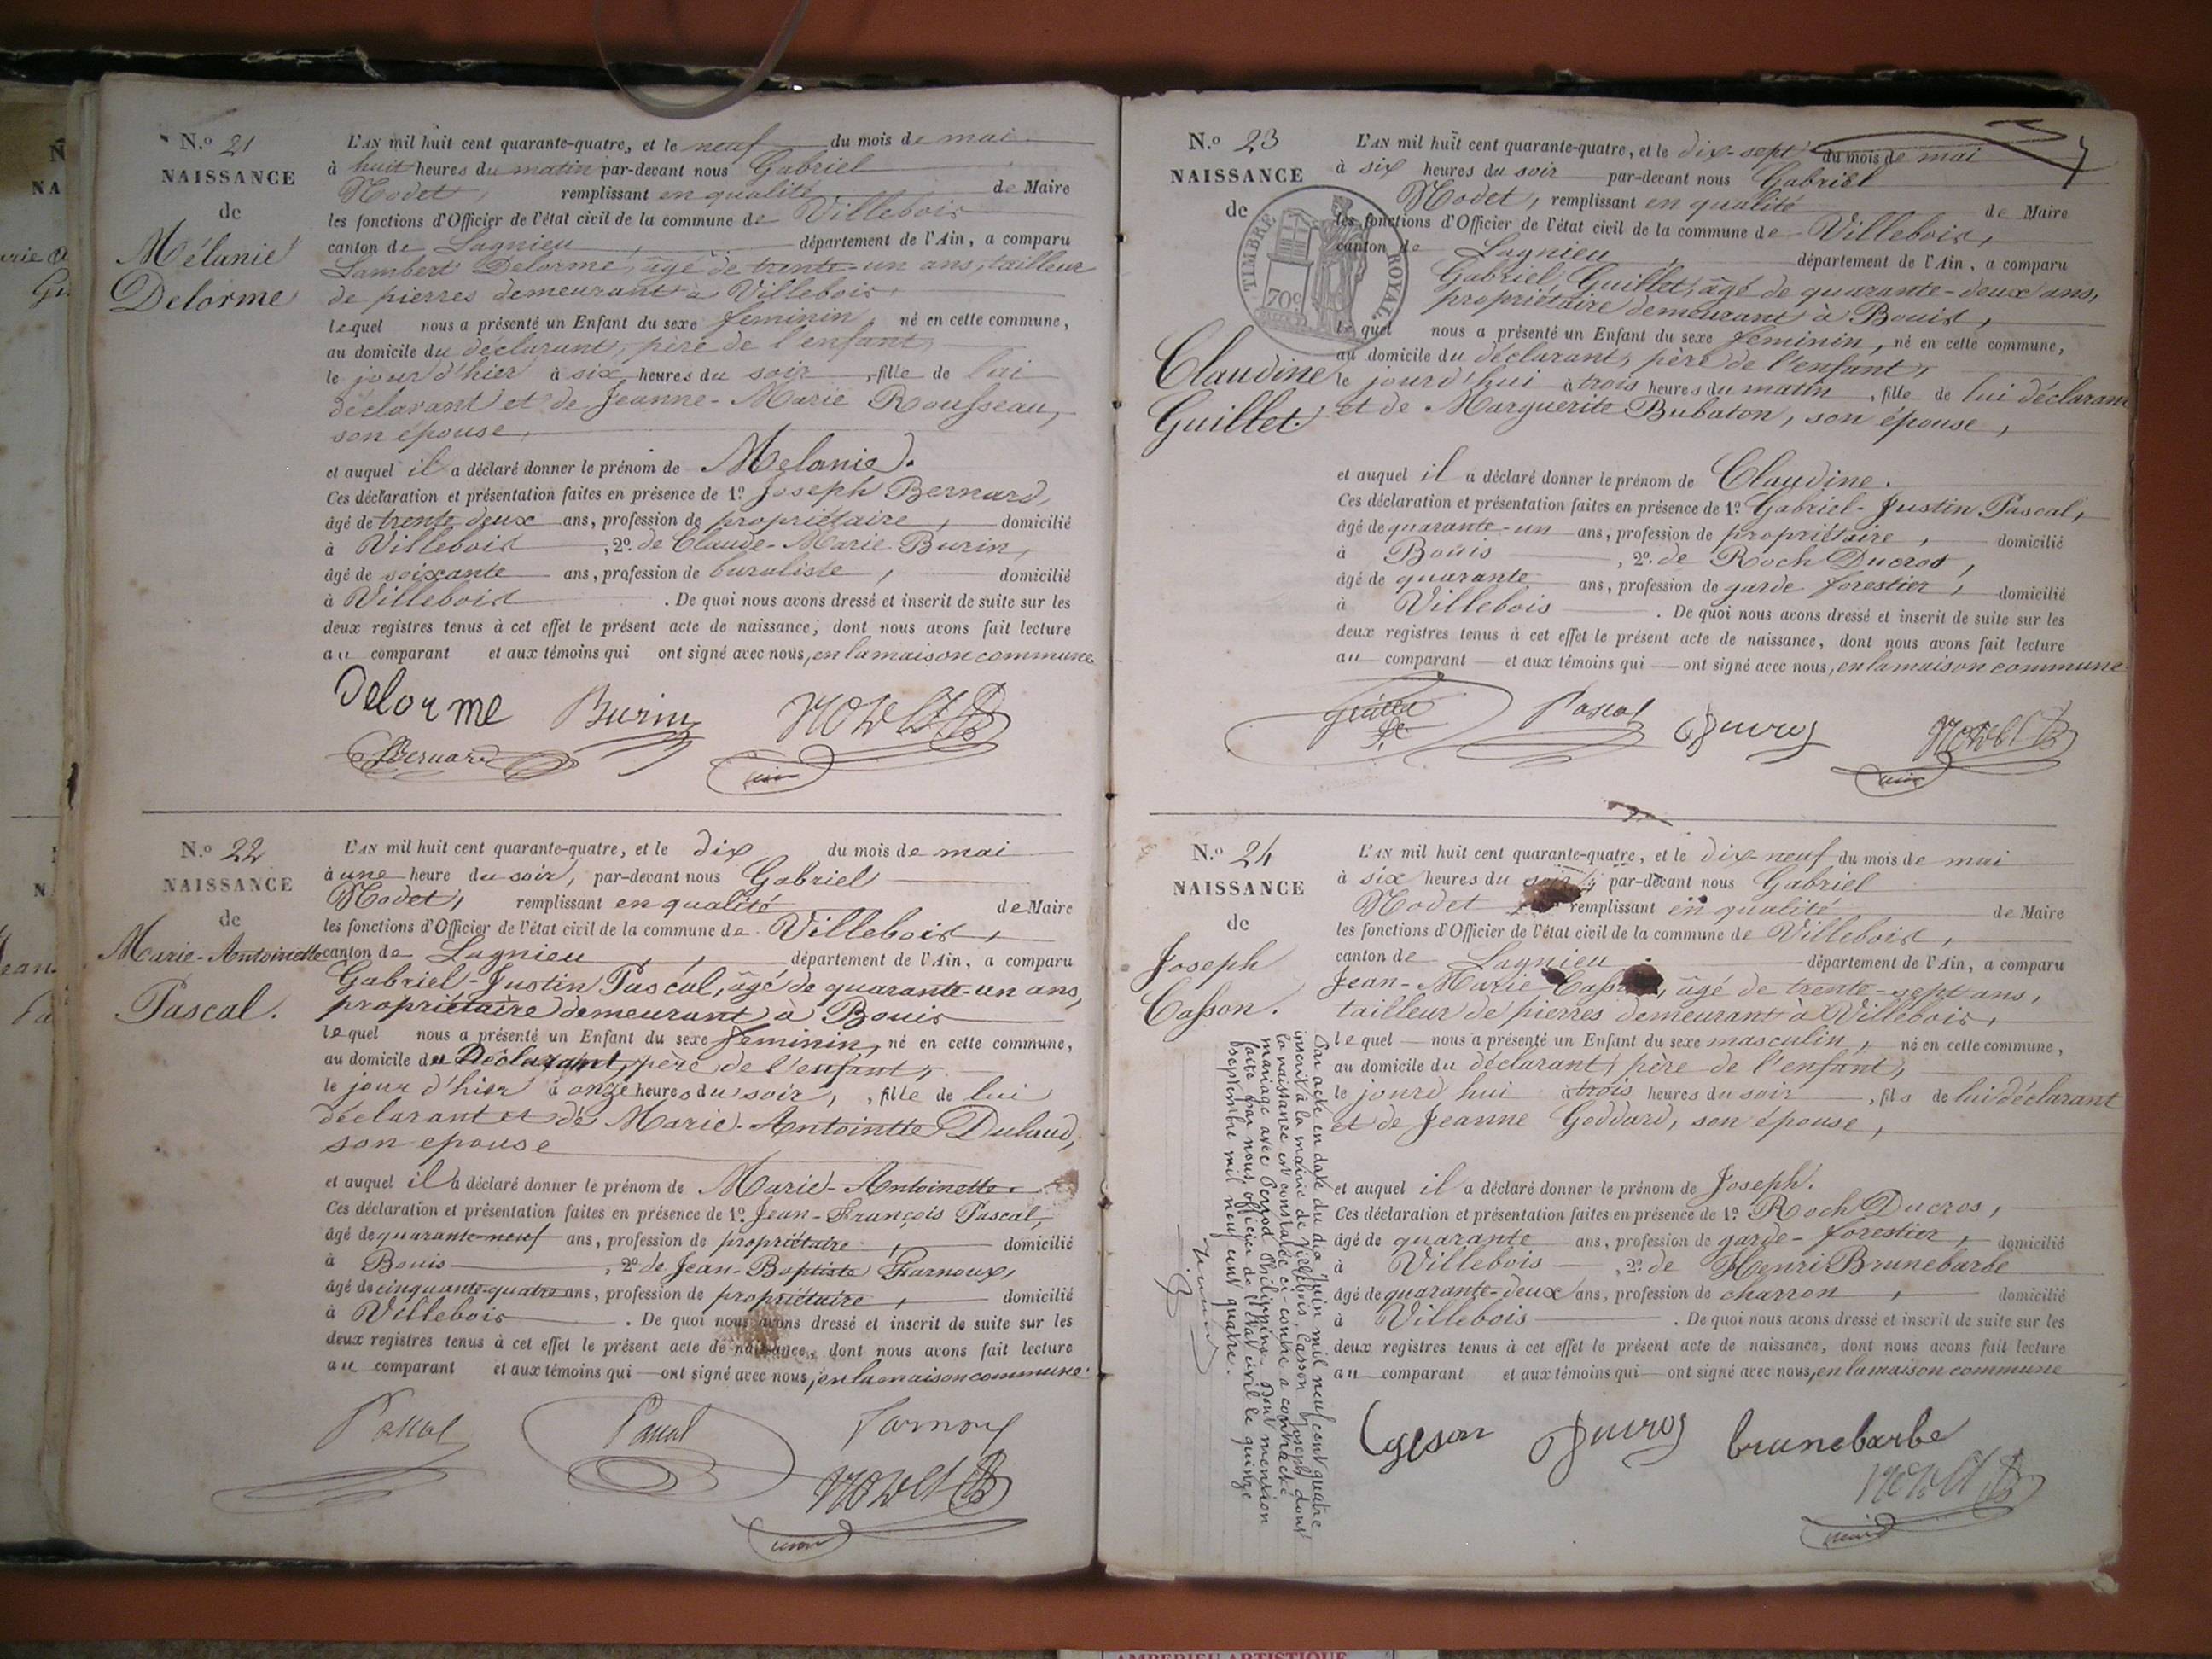 N.º 21
NAISSANCE
de
Mélanie
Delorme
L'AN mil huit cent quarante-quatre, et le neuf du mois de mai
à huit heures du matin par-devant nous Gabriel
Modet, remplissant en qualité de Maire
les fonctions d'Officier de l'état civil de la commune de Villebois
canton de Lagnieu, département de l'Ain, a comparu
Lambert Delorme, âgé de trente-un ans, tailleur
de pierres demeurant à Villebois,
lequel nous a présenté un Enfant du sexe feminin, né en cette commune,
au domicile du déclarant, père de l'enfant,
le jour d'hier à six heures du soir, fille de lui
déclarant et de Jeanne-Marie Rousseau,
son épouse,
et auquel il a déclaré donner le prénom de Melanie.
Ces déclaration et présentation faites en présence de 1º Joseph Bernard,
âgé de trente deux ans, profession de propriétaire, domicilié
à Villebois, 2º de Claude-Marie Burin,
âgé de soixante ans, profession de buraliste, domicilié
à Villebois. De quoi nous avons dressé et inscrit de suite sur les
deux registres tenus à cet effet le présent acte de naissance, dont nous avons fait lecture
au comparant et aux témoins qui ont signé avec nous, en la maison commune.
Delorme Burin Modet
Bernard
N.º 22
NAISSANCE
de
Marie-Antoinette
Pascal.
L'AN mil huit cent quarante-quatre, et le dix du mois de mai
à une heure du soir, par-devant nous Gabriel
Modet, remplissant en qualité de Maire
les fonctions d'Officier de l'état civil de la commune de Villebois,
canton de Lagnieu, département de l'Ain, a comparu
Gabriel-Justin Pascal, âgé de quarante-un ans,
propriétaire demeurant à Bouis
lequel nous a présenté un Enfant du sexe feminin, né en cette commune,
au domicile du Déclarant, père de l'enfant,
le jour d'hier à onze heures du soir, fille de lui
déclarant et de Marie-Antointte Dulaud,
son epouse
et auquel il a déclaré donner le prénom de Marie-Antoinette.
Ces déclaration et présentation faites en présence de 1º Jean-François Pascal,
âgé de quarante-neuf ans, profession de propriétaire, domicilié
à Bouis, 2º de Jean-Baptiste Farnoux,
âgé de cinquante-quatre ans, profession de propriétaire, domicilié
à Villebois. De quoi nous avons dressé et inscrit de suite sur les
deux registres tenus à cet effet le présent acte de naissance, dont nous avons fait lecture
au comparant et aux témoins qui ont signé avec nous, en la maison commune.
Pascal Pascal Farnoux
Modet
N.º 23
NAISSANCE
de
TIMBRE ROYAL
70c
Claudine
Guillet.
L'AN mil huit cent quarante-quatre, et le dix-sept du mois de mai
à six heures du soir par-devant nous Gabriel
Modet, remplissant en qualité de Maire
les fonctions d'Officier de l'état civil de la commune de Villebois,
canton de Lagnieu, département de l'Ain, a comparu
Gabriel Guillet, âgé de quarante-deux ans,
propriétaire demeurant à Bouis,
lequel nous a présenté un Enfant du sexe feminin, né en cette commune,
au domicile du déclarant, père de l'enfant,
le jourd'hui à trois heures du matin, fille de lui déclarant
et de Marguerite Bubaton, son épouse,
et auquel il a déclaré donner le prénom de Claudine.
Ces déclaration et présentation faites en présence de 1º Gabriel-Justin Pascal,
âgé de quarante-un ans, profession de propriétaire, domicilié
à Bouis, 2º de Roch Ducros,
âgé de quarante ans, profession de garde forestier, domicilié
à Villebois. De quoi nous avons dressé et inscrit de suite sur les
deux registres tenus à cet effet le présent acte de naissance, dont nous avons fait lecture
au comparant et aux témoins qui ont signé avec nous, en la maison commune
Pascal Ducros Modet
N.º 24
NAISSANCE
de
Joseph
Casson.
L'AN mil huit cent quarante-quatre, et le dix-neuf du mois de mai
à six heures du soir, par-devant nous Gabriel
Modet remplissant en qualité de Maire
les fonctions d'Officier de l'état civil de la commune de Villebois,
canton de Lagnieu département de l'Ain, a comparu
Jean-Marie Casson, âgé de trente-sept ans,
tailleur de pierres demeurant à Villebois,
lequel nous a présenté un Enfant du sexe masculin, né en cette commune,
au domicile du déclarant, père de l'enfant,
le jourd'hui à trois heures du soir, fils de lui déclarant
et de Jeanne Goddard, son épouse,
et auquel il a déclaré donner le prénom de Joseph.
Ces déclaration et présentation faites en présence de 1º Roch Ducros,
âgé de quarante ans, profession de garde-forestier, domicilié
à Villebois, 2º de Henri Brunebarbe
âgé de quarante-deux ans, profession de charron, domicilié
à Villebois. De quoi nous avons dressé et inscrit de suite sur les
deux registres tenus à cet effet le présent acte de naissance, dont nous avons fait lecture
au comparant et aux témoins qui ont signé avec nous, en la maison commune
Casson Ducros brunebarbe
Modet
Par acte en date du dix juin mil neuf cent quatre
inscrit à la mairie de Villebois, Casson Joseph dont
la naissance est constatée ci-contre a contracté
mariage avec Perrod Philippine. Dont mention
faite par nous, officier de l'état civil le quinze
septembre mil neuf cent quatre.
AMBERIEU ARTISTIQUE